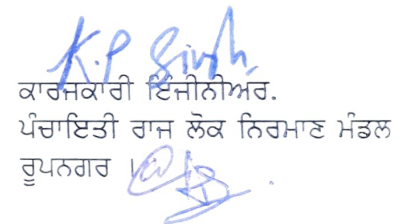 K.P Singh
ਕਾਰਜਕਾਰੀ ਇੰਜੀਨੀਅਰ.
ਪੰਚਾਇਤੀ ਰਾਜ ਲੋਕ ਨਿਰਮਾਣ ਮੰਡਲ
ਰੂਪਨਗਰ ।